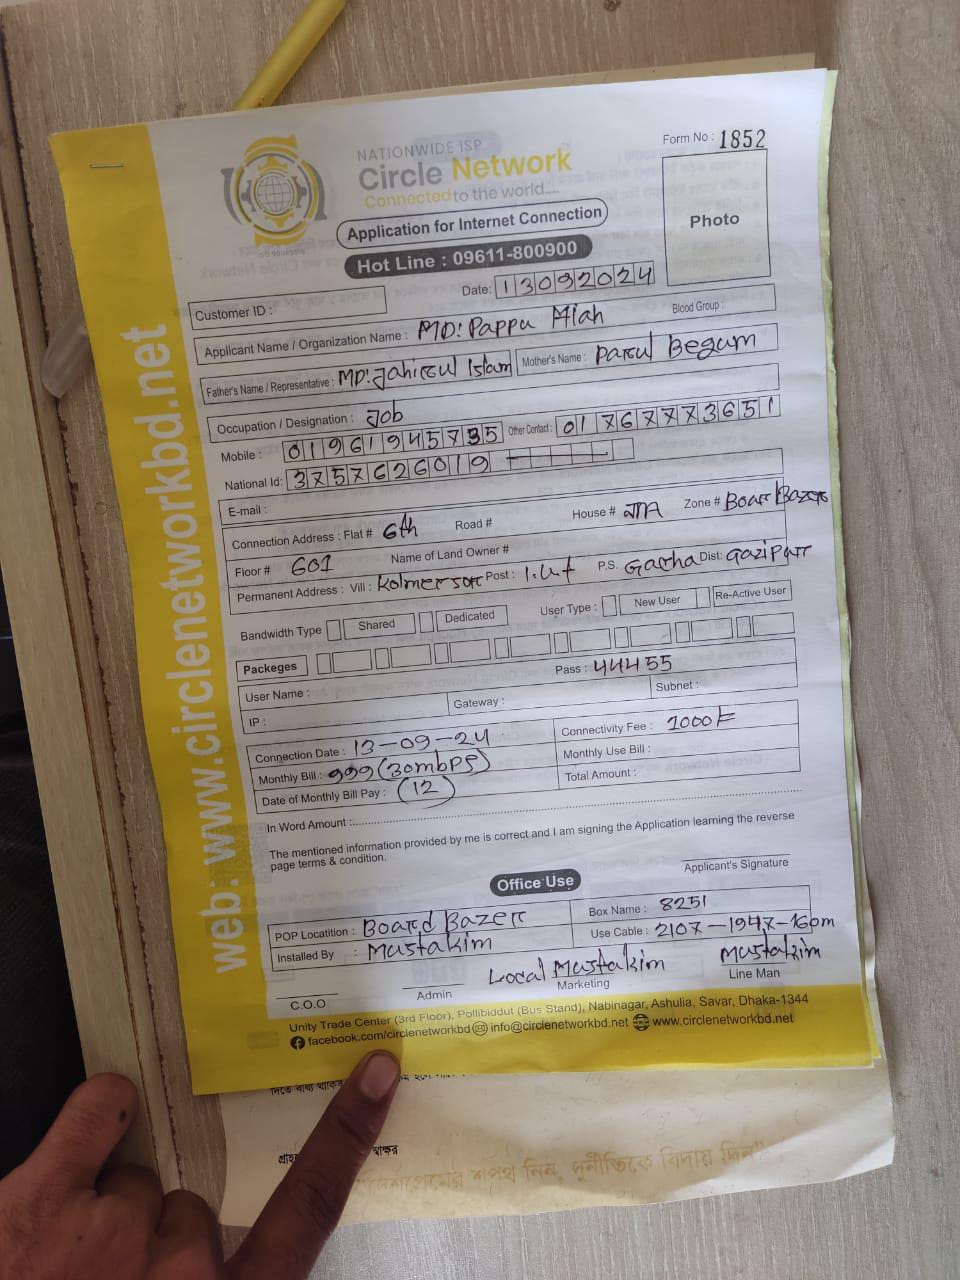 Form No : 1852
NATIONWIDE ISP
Circle Network
Connected to the world.....
Application for Internet Connection
Hot Line : 09611-800900
Photo
Date: 13092024
Customer ID :
Applicant Name / Organization Name : MD: Pappu Miah Blood Group :
Father's Name / Representative : MD: Jahirul Islam Mother's Name : Parul Begum
Occupation / Designation : Job
Mobile : 01961945735 Other Contact : 01767773651
National Id: 3757626019
E-mail :
Connection Address : Flat # 6th Road # House # Zone #
Floor # 601 Name of Land Owner #
Permanent Address : Vill : Post : I.U.t P.S. Gacha Dist: Gazipur
Bandwidth Type Shared Dedicated User Type : New User Re-Active User
Packeges
User Name : Pass : 444455
IP : Gateway : Subnet :
Connection Date : 13-09-24 Connectivity Fee : 1000/=
Monthly Bill : 999 (30mbps) Monthly Use Bill :
Date of Monthly Bill Pay : (12) Total Amount :
In Word Amount :
The mentioned information provided by me is correct and I am signing the Application learning the reverse
page terms & condition.
Applicant's Signature
Office Use
POP Locatition : Board Bazer Box Name : 8251
Installed By : Mustakim Use Cable : 2107-1947-160m
Local Mustakim Mustakim
C.O.O Admin Marketing Line Man
Unity Trade Center (3rd Floor), Pollibiddut (Bus Stand), Nabinagar, Ashulia, Savar, Dhaka-1344
facebook.com/circlenetworkbd info@circlenetworkbd.net www.circlenetworkbd.net
web: www.circlenetworkbd.net
"দেশপ্রেমের শপথ নিন, দুর্নীতিকে বিদায় দিন"